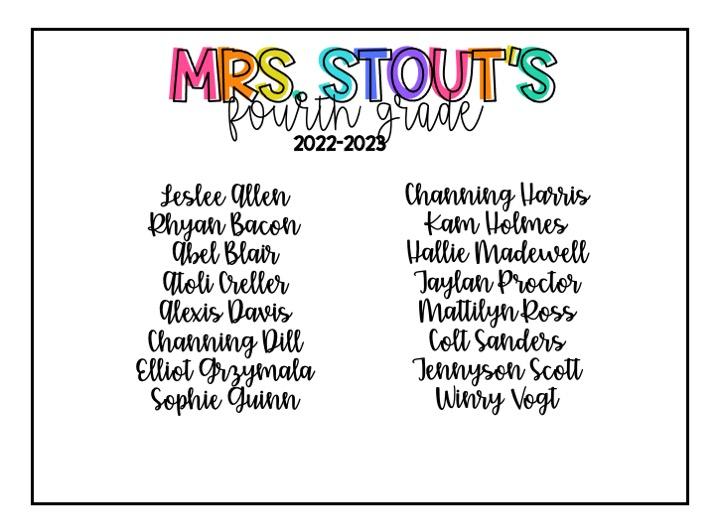 MRS. STOUT'S
fourth grade
2022-2023
Leslee Allen
Rhyan Bacon
Abel Blair
Atoli Creller
Alexis Davis
Channing Dill
Elliot Grzymala
Sophie Guinn
Channing Harris
Kam Holmes
Hallie Madewell
Jaylan Proctor
Mattilyn Ross
Colt Sanders
Jennyson Scott
Winry Vogt